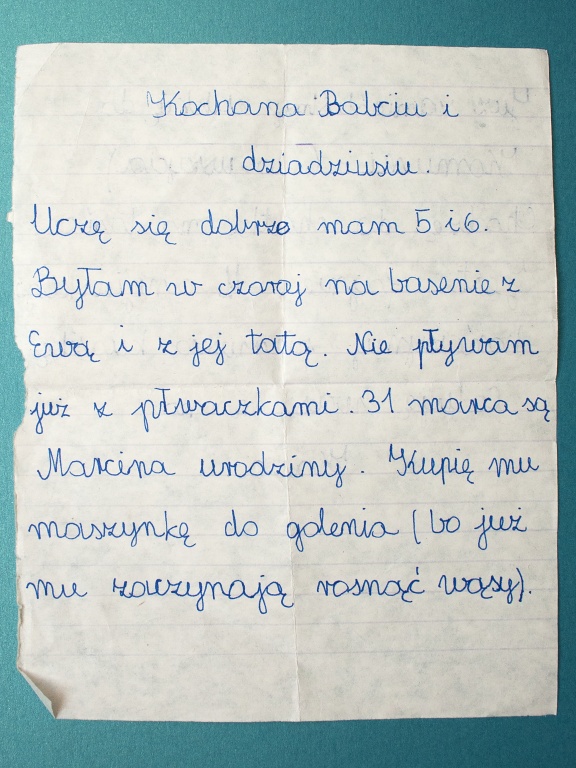 Kochana Babciu i
dziadziusiu.
Uczę się dobrze mam 5 i 6.
Byłam w czoraj na basenie z
Ewą i z jej tatą. Nie pływam
już z płwaczkami. 31 marca są
Marcina urodziny. Kupię mu
maszynkę do golenia (bo już
mu zaczynają rosnąć wąsy).